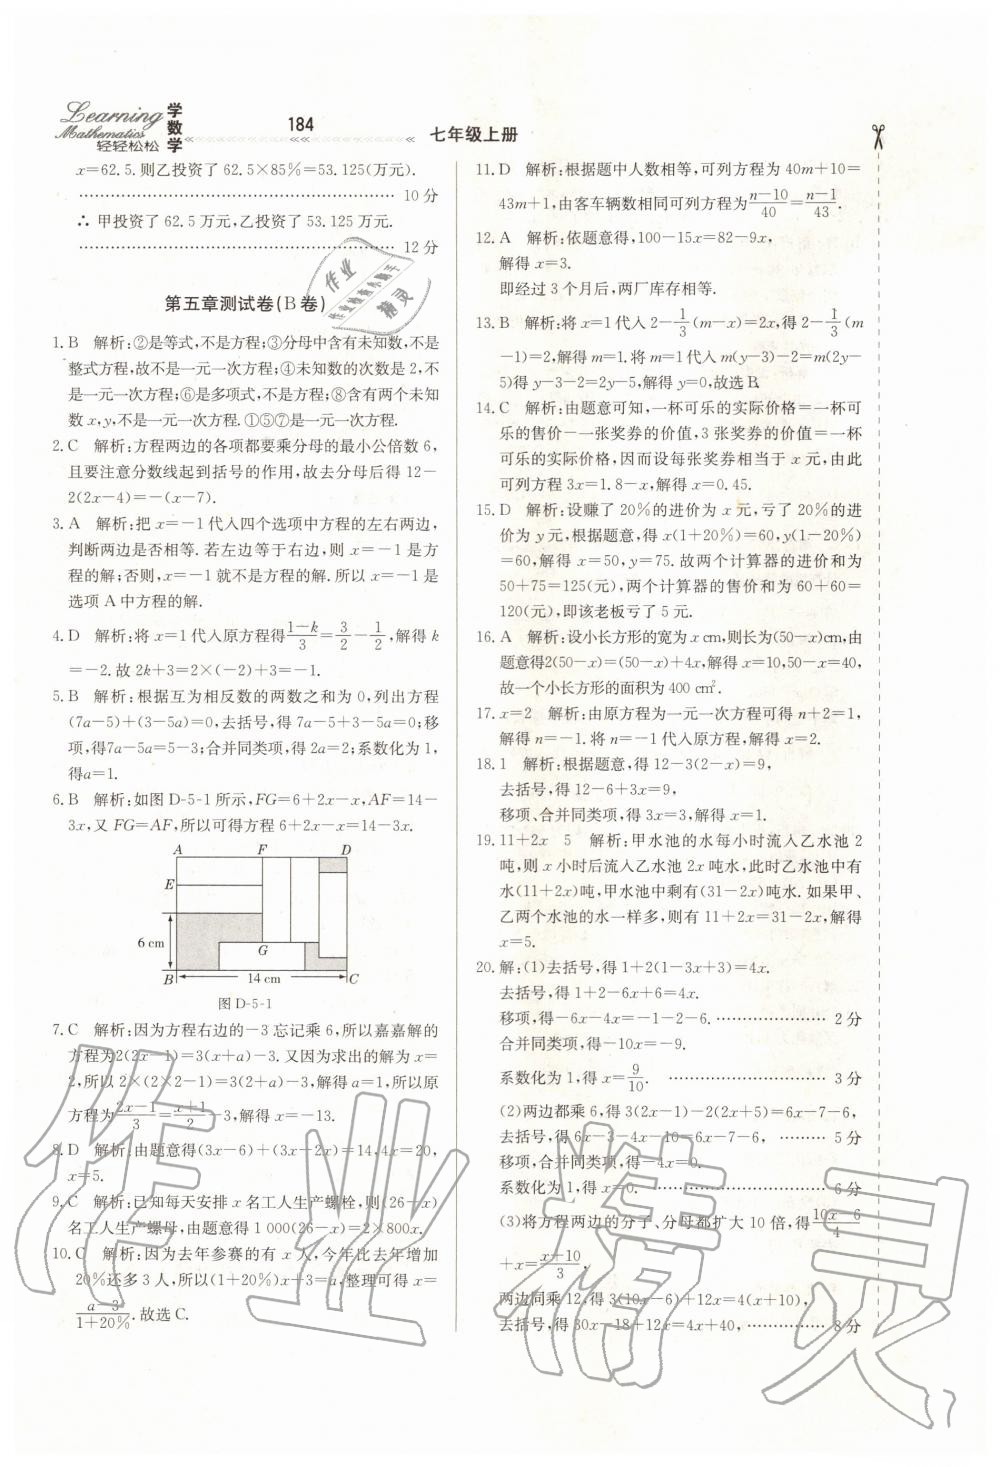 Learning
Mathematics
轻轻松松
学数学
184
七年级上册
x=62.5.则乙投资了 62.5×85%=53.125(万元).
10 分
∴ 甲投资了 62.5 万元,乙投资了 53.125 万元.
12 分
第五章测试卷(B 卷)
1. B 解析:②是等式,不是方程;③分母中含有未知数,不是
整式方程,故不是一元一次方程;④未知数的次数是 2,不
是一元一次方程;⑥是多项式,不是方程;⑧含有两个未知
数 x,y,不是一元一次方程.①⑤⑦是一元一次方程.
2. C 解析:方程两边的各项都要乘分母的最小公倍数 6,
且要注意分数线起到括号的作用,故去分母后得 12-
2(2x-4)=-(x-7).
3. A 解析:把 x=-1 代入四个选项中方程的左右两边,
判断两边是否相等.若左边等于右边,则 x=-1 是方
程的解;否则,x=-1 就不是方程的解.所以 x=-1 是
选项 A 中方程的解.
4. D 解析:将 x=1 代入原方程得(1-k)/3=3/2-1/2,解得 k
=-2.故 2k+3=2×(-2)+3=-1.
5. B 解析:根据互为相反数的两数之和为 0,列出方程
(7a-5)+(3-5a)=0,去括号,得 7a-5+3-5a=0;移
项,得7a-5a=5-3;合并同类项,得 2a=2;系数化为 1,
得a=1.
6. B 解析:如图 D-5-1 所示,FG=6+2x-x,AF=14-
3x,又 FG=AF,所以可得方程 6+2x-x=14-3x.
A F D
E
6 cm
G
B 14 cm C
图 D-5-1
7. C 解析:因为方程右边的-3 忘记乘 6,所以嘉嘉解的
方程为2(2x-1)=3(x+a)-3.又因为求出的解为 x=
2,所以 2×(2×2-1)=3(2+a)-3,解得 a=1,所以原
方程为(2x-1)/3=(x+1)/2-3,解得 x=-13.
8. D 解析:由题意得(3x-6)+(3x-2x)=14,4x=20,
x=5.
9. C 解析:已知每天安排 x 名工人生产螺栓,则(26-x)
名工人生产螺母,由题意得 1 000(26-x)=2×800x.
10. C 解析:因为去年参赛的有 x 人,今年比去年增加
20%还多 3 人,所以(1+20%)x+3=a,整理可得 x=
(a-3)/(1+20%).故选 C.
11. D 解析:根据题中人数相等,可列方程为 40m+10=
43m+1,由客车辆数相同可列方程为(n-10)/40=(n-1)/43.
12. A 解析:依题意得,100-15x=82-9x,
解得 x=3.
即经过 3 个月后,两厂库存相等.
13. B 解析:将 x=1代入 2-1/3(m-x)=2x,得 2-1/3(m
-1)=2,解得 m=1.将 m=1 代入 m(y-3)-2=m(2y-
5)得 y-3-2=2y-5,解得 y=0,故选 B.
14. C 解析:由题意可知,一杯可乐的实际价格=一杯可
乐的售价-一张奖券的价值,3 张奖券的价值=一杯
可乐的实际价格,因而设每张奖券相当于 x 元,由此
可列方程 3x=1.8-x,解得 x=0.45.
15. D 解析:设赚了 20%的进价为 x 元,亏了 20%的进
价为 y 元,根据题意,得 x(1+20%)=60,y(1-20%)
=60,解得 x=50,y=75.故两个计算器的进价和为
50+75=125(元),两个计算器的售价和为 60+60=
120(元),即该老板亏了 5 元.
16. A 解析:设小长方形的宽为 x cm,则长为(50-x)cm,由
题意得2(50-x)=(50-x)+4x,解得 x=10,50-x=40,
故一个小长方形的面积为 400 cm².
17. x=2 解析:由原方程为一元一次方程可得 n+2=1,
解得 n=-1.将 n=-1 代入原方程,解得 x=2.
18. 1 解析:根据题意,得 12-3(2-x)=9,
去括号,得 12-6+3x=9,
移项、合并同类项,得 3x=3,解得 x=1.
19. 11+2x 5 解析:甲水池的水每小时流入乙水池 2
吨,则 x 小时后流入乙水池 2x 吨水,此时乙水池中有
水(11+2x)吨,甲水池中剩有(31-2x)吨水.如果甲、
乙两个水池的水一样多,则有 11+2x=31-2x,解得
x=5.
20. 解:(1)去括号,得 1+2(1-3x+3)=4x.
去括号,得 1+2-6x+6=4x.
移项,得-6x-4x=-1-2-6. 2 分
合并同类项,得-10x=-9.
系数化为 1,得 x=9/10. 3 分
(2)两边都乘 6,得 3(2x-1)-2(2x+5)=6x-7-6,
去括号,得 6x-3-4x-10=6x-7-6, 5 分
移项,合并同类项,得-4x=0.
系数化为 1,得 x=0. 6 分
(3)将方程两边的分子、分母都扩大 10 倍,得(10x-6)/4
+x=(x+10)/3,
两边同乘 12,得 3(10x-6)+12x=4(x+10),
去括号,得 30x-18+12x=4x+40, 8 分
作业精灵